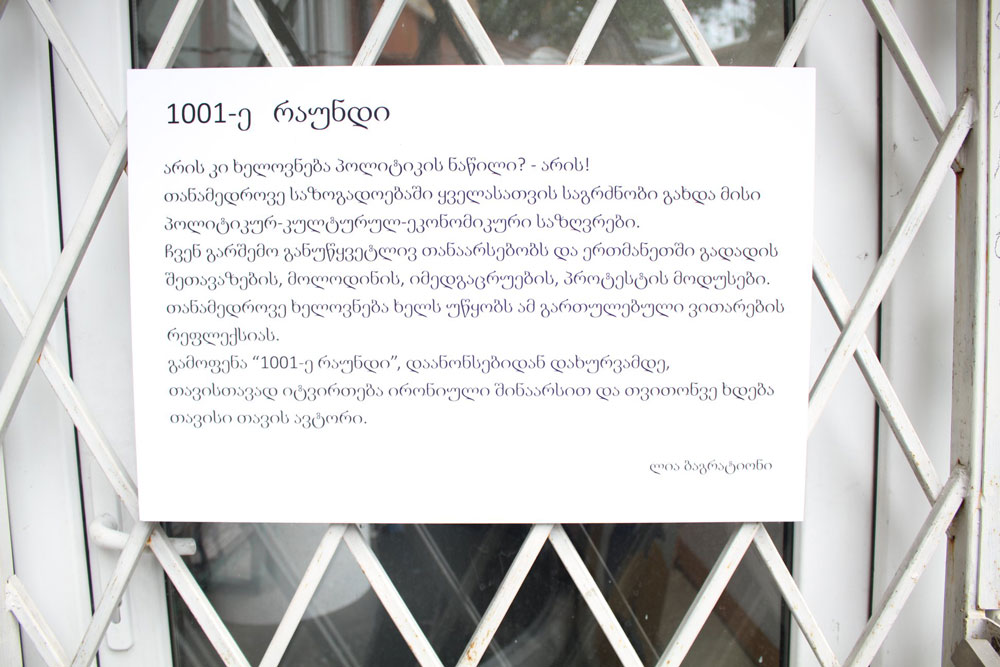 1001-ე რაუნდი
არის კი ხელოვნება პოლიტიკის ნაწილი? - არის!
თანამედროვე საზოგადოებაში ყველასათვის საგრძნობი გახდა მისი
პოლიტიკურ-კულტურულ-ეკონომიკური საზღვრები.
ჩვენ გარშემო განუწყვეტლივ თანაარსებობს და ერთმანეთში გადადის
შეთავაზების, მოლოდინის, იმედგაცრუების, პროტესტის მოდუსები.
თანამედროვე ხელოვნება ხელს უწყობს ამ გართულებული ვითარების
რეფლექსიას.
გამოფენა “1001-ე რაუნდი”, დაანონსებიდან დახურვამდე,
თავისთავად იტვირთება ირონიული შინაარსით და თვითონვე ხდება
თავისი თავის ავტორი.
ლია ბაგრატიონი